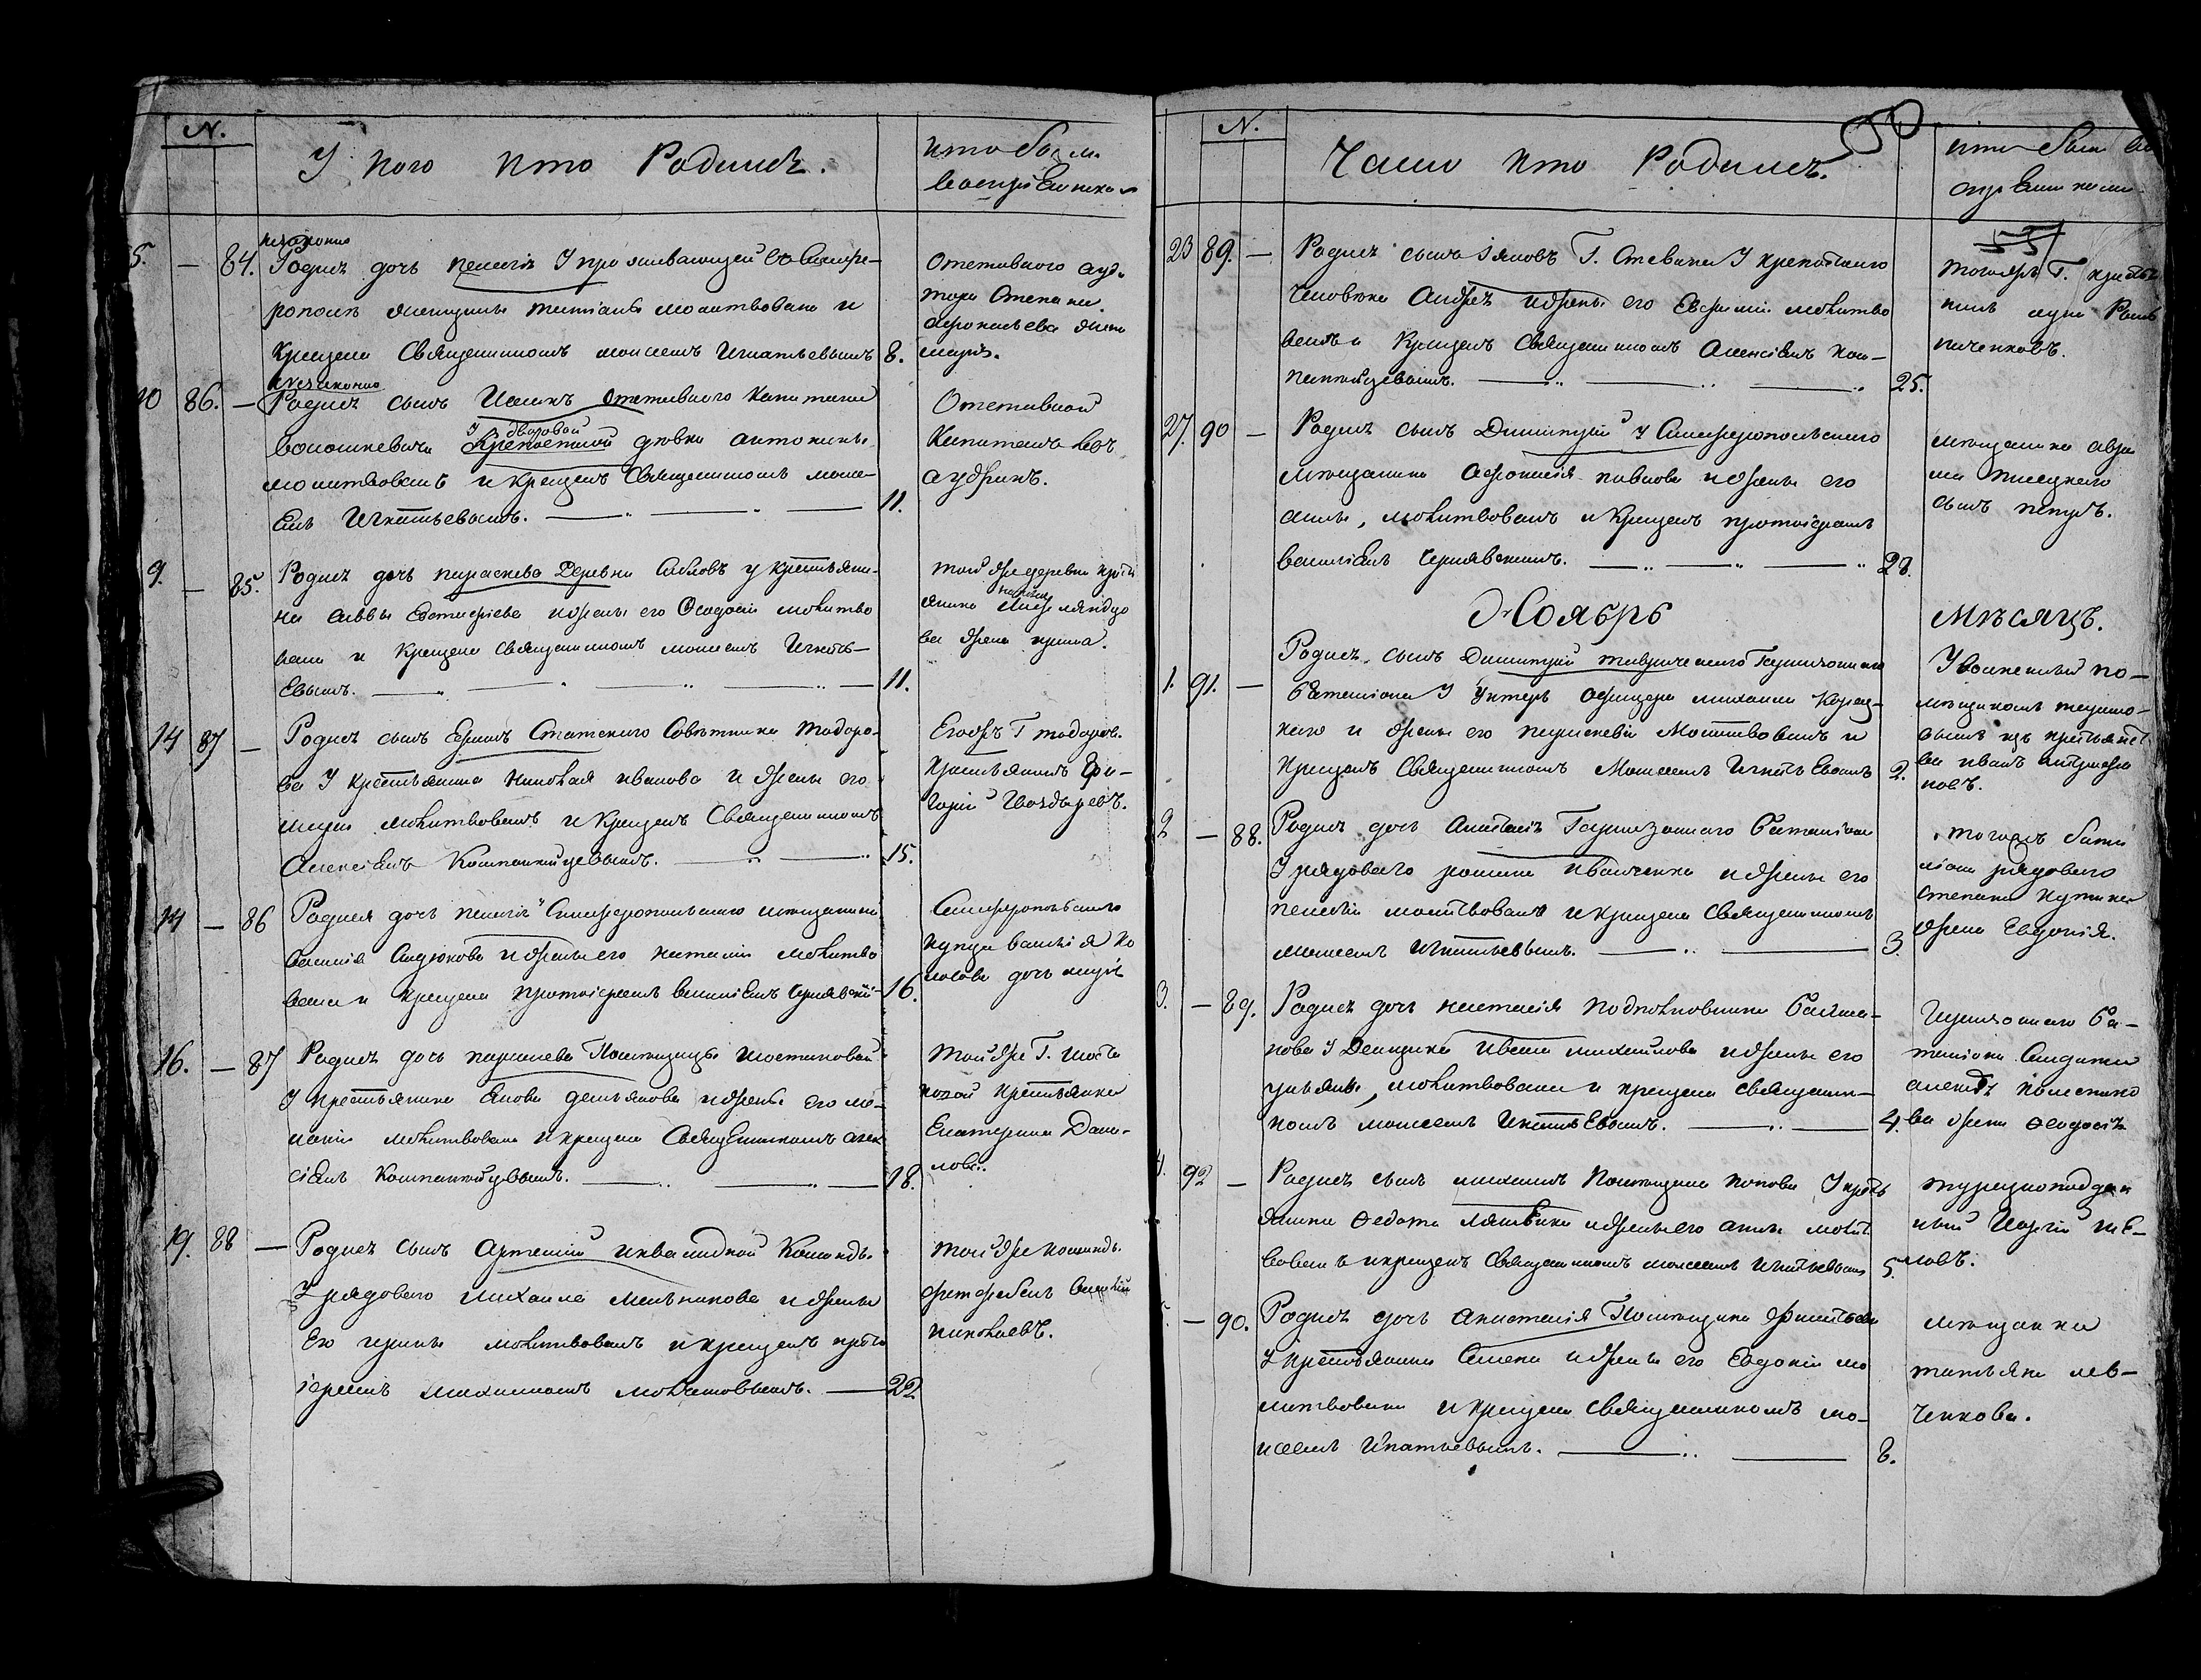 N.
У кого кто Родилсѧ.
кто были
воспріемники
5. — 84.
незаконно
Родись дочь пелагія У проживающей въ Симфе-
рополѣ женщины татіаны молитвована и
Крещена Священникомъ моисеемъ Игнатьевымъ 8.
Отставного ауди
тора Степана
жена
марія.
10 86. —
незаконно
Родись сынъ Исаакъ отставного капитана
волошкевича У дворовой Крепостной дѣвки антонины
молитвованъ и крещенъ Священникомъ моисе-
емъ Игнатьевымъ. 11.
Отставной
Капитанъ
9. — 85.
Родись дочь параскева Деревни Сабловъ у крестьяни-
на саввы Евстафіева и жены его Феодосіи молитво
вана и Крещена Священникомъ моисеемъ Игнать-
Евымъ. 11.
той же деревни крестъ
янина
ва жена ирина.
14 87 —
Родись сынъ Ефимъ Статского Совѣтника Тодоро-
ва У Крестьянина Николая иванова и жены его
марѳы молитвованъ и Крещенъ Священникомъ
Алексіемъ Компанейцевымъ. 15.
Егожъ Г тодоров.
Крестьянинъ Гри-
горій Гвоздыревъ.
14 — 86
Родися дочь пелагія Симферопольского мещанина
василія Сидюкова и жены его наталіи молитво
вана и крещена протоіереемъ василіемъ Чернявскі- 16.
Симферопольского
купца василія Ко
лосова дочь марія
16. — 87
Родись дочь параскева Помещицы шостаковой
У крестьянина Якова демьянова и жены его ме-
ланіи молитвована и крещена Священникомъ алек
сіемъ Компанейцевымъ. 18.
той же Г. Шоста
ковой крестьянка
Екатерина Дани-
лова.
19. 88 —
Родись сынъ Артемій инвалидной Команды
У рядового Михаила мельникова и жены
Его ирины молитвованъ и крещенъ прото
іереемъ михаиломъ молчановымъ. 22
той же команды
фельдфебель
николаевъ.
N.
Часло кто Родилсѧ. 50
кто были во
спріемники
55
23 89. —
Родись сынъ Іяковъ Г. Стевена У крепостного
Человека Андрея и жены его Евфиміи молитво
ванъ и Крещенъ Священникомъ Алексіемъ Ком-
панейцевымъ. 25.
тогожъ Г. крестья
нинъ
27. 90 —
Родись сынъ Димитрій У Симферопольского
мещанина Афанасія павлова и жены его
анны, молитвованъ и Крещенъ протоіереемъ
василіемъ Чернявскимъ. 28.
мещанина авра
ма Писецкого
сынъ петръ.
Ноябрь Мѣсяцъ.
1. 91. —
Родись сынъ Димитрій таврического Гарнизонного
Баталіона У Унтеръ Офицера михаила Корец-
кого и жены его параскевіи Молитвованъ и
Крещенъ Священникомъ Моисеемъ Игнатьевымъ 2.
Уволенный по-
мещикомъ
изъ крестьянст
ва иванъ
новъ.
2 — 88.
Родись дочь Анастасія Гарнизонного Баталіона
У рядового романа иванченка и жены его
пелагіи молитвована и крещена священникомъ
моисеемъ Игнатьевымъ. 3.
тогожъ бата
ліона рядового
степана
жена Евдокія.
3. — 89.
Родись дочь настасія Подполковника
нова У Денщика Ивана михайлова и жены его
ульяны, молитвована и крещена священни-
комъ моисеемъ Игнатьевымъ. 4.
Гарнизонного Ба-
таліона Солдата
ва жена Феодосія
4. 92 —
Родись сынъ михаилъ Помещика попова У кресть
янина Федота и жены его анны молит
вованъ и крещенъ Священникомъ моисеемъ Игнатьевымъ 5.
турецкоподдан
ный Георгій
мовъ.
— 90.
Родись дочь Анастасія Помещика
У крестьянина Семена и жены его Евдокіи мо
литвована и крещена священникомъ мо-
исеемъ Игнатьевымъ. 8.
мещанка
татьяна лев-
ченкова.